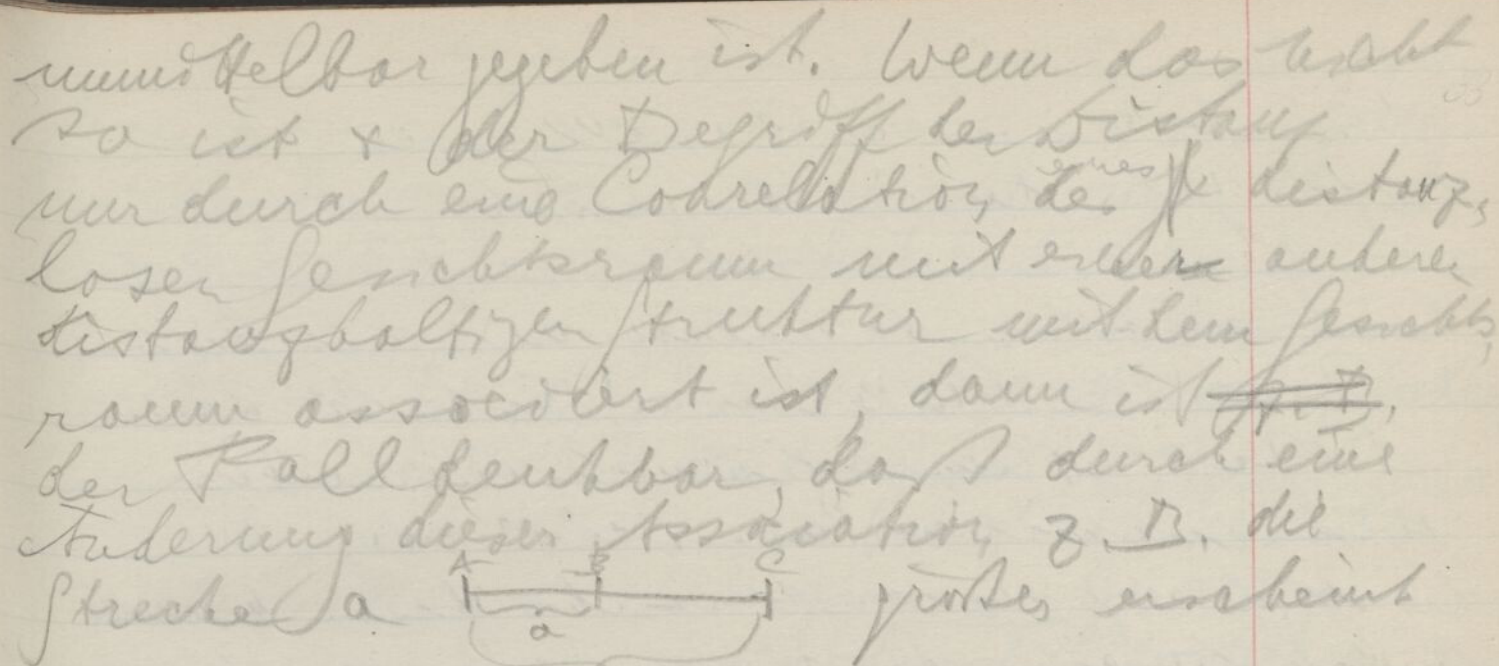 unmittelbar gegeben ist. Wenn das nicht
so ist & der Begriff der Distanz
nur durch eine Correlation des eines distanz-
losen Gesichtsraum mit einer anderen
distanzhaltigen Struktur mit dem Gesichts-
raum associiert ist, dann ist z.B.
der Fall denkbar, daß durch eine
Änderung dieser Association z.B. die
A B C
Strecke a größer erscheint
a